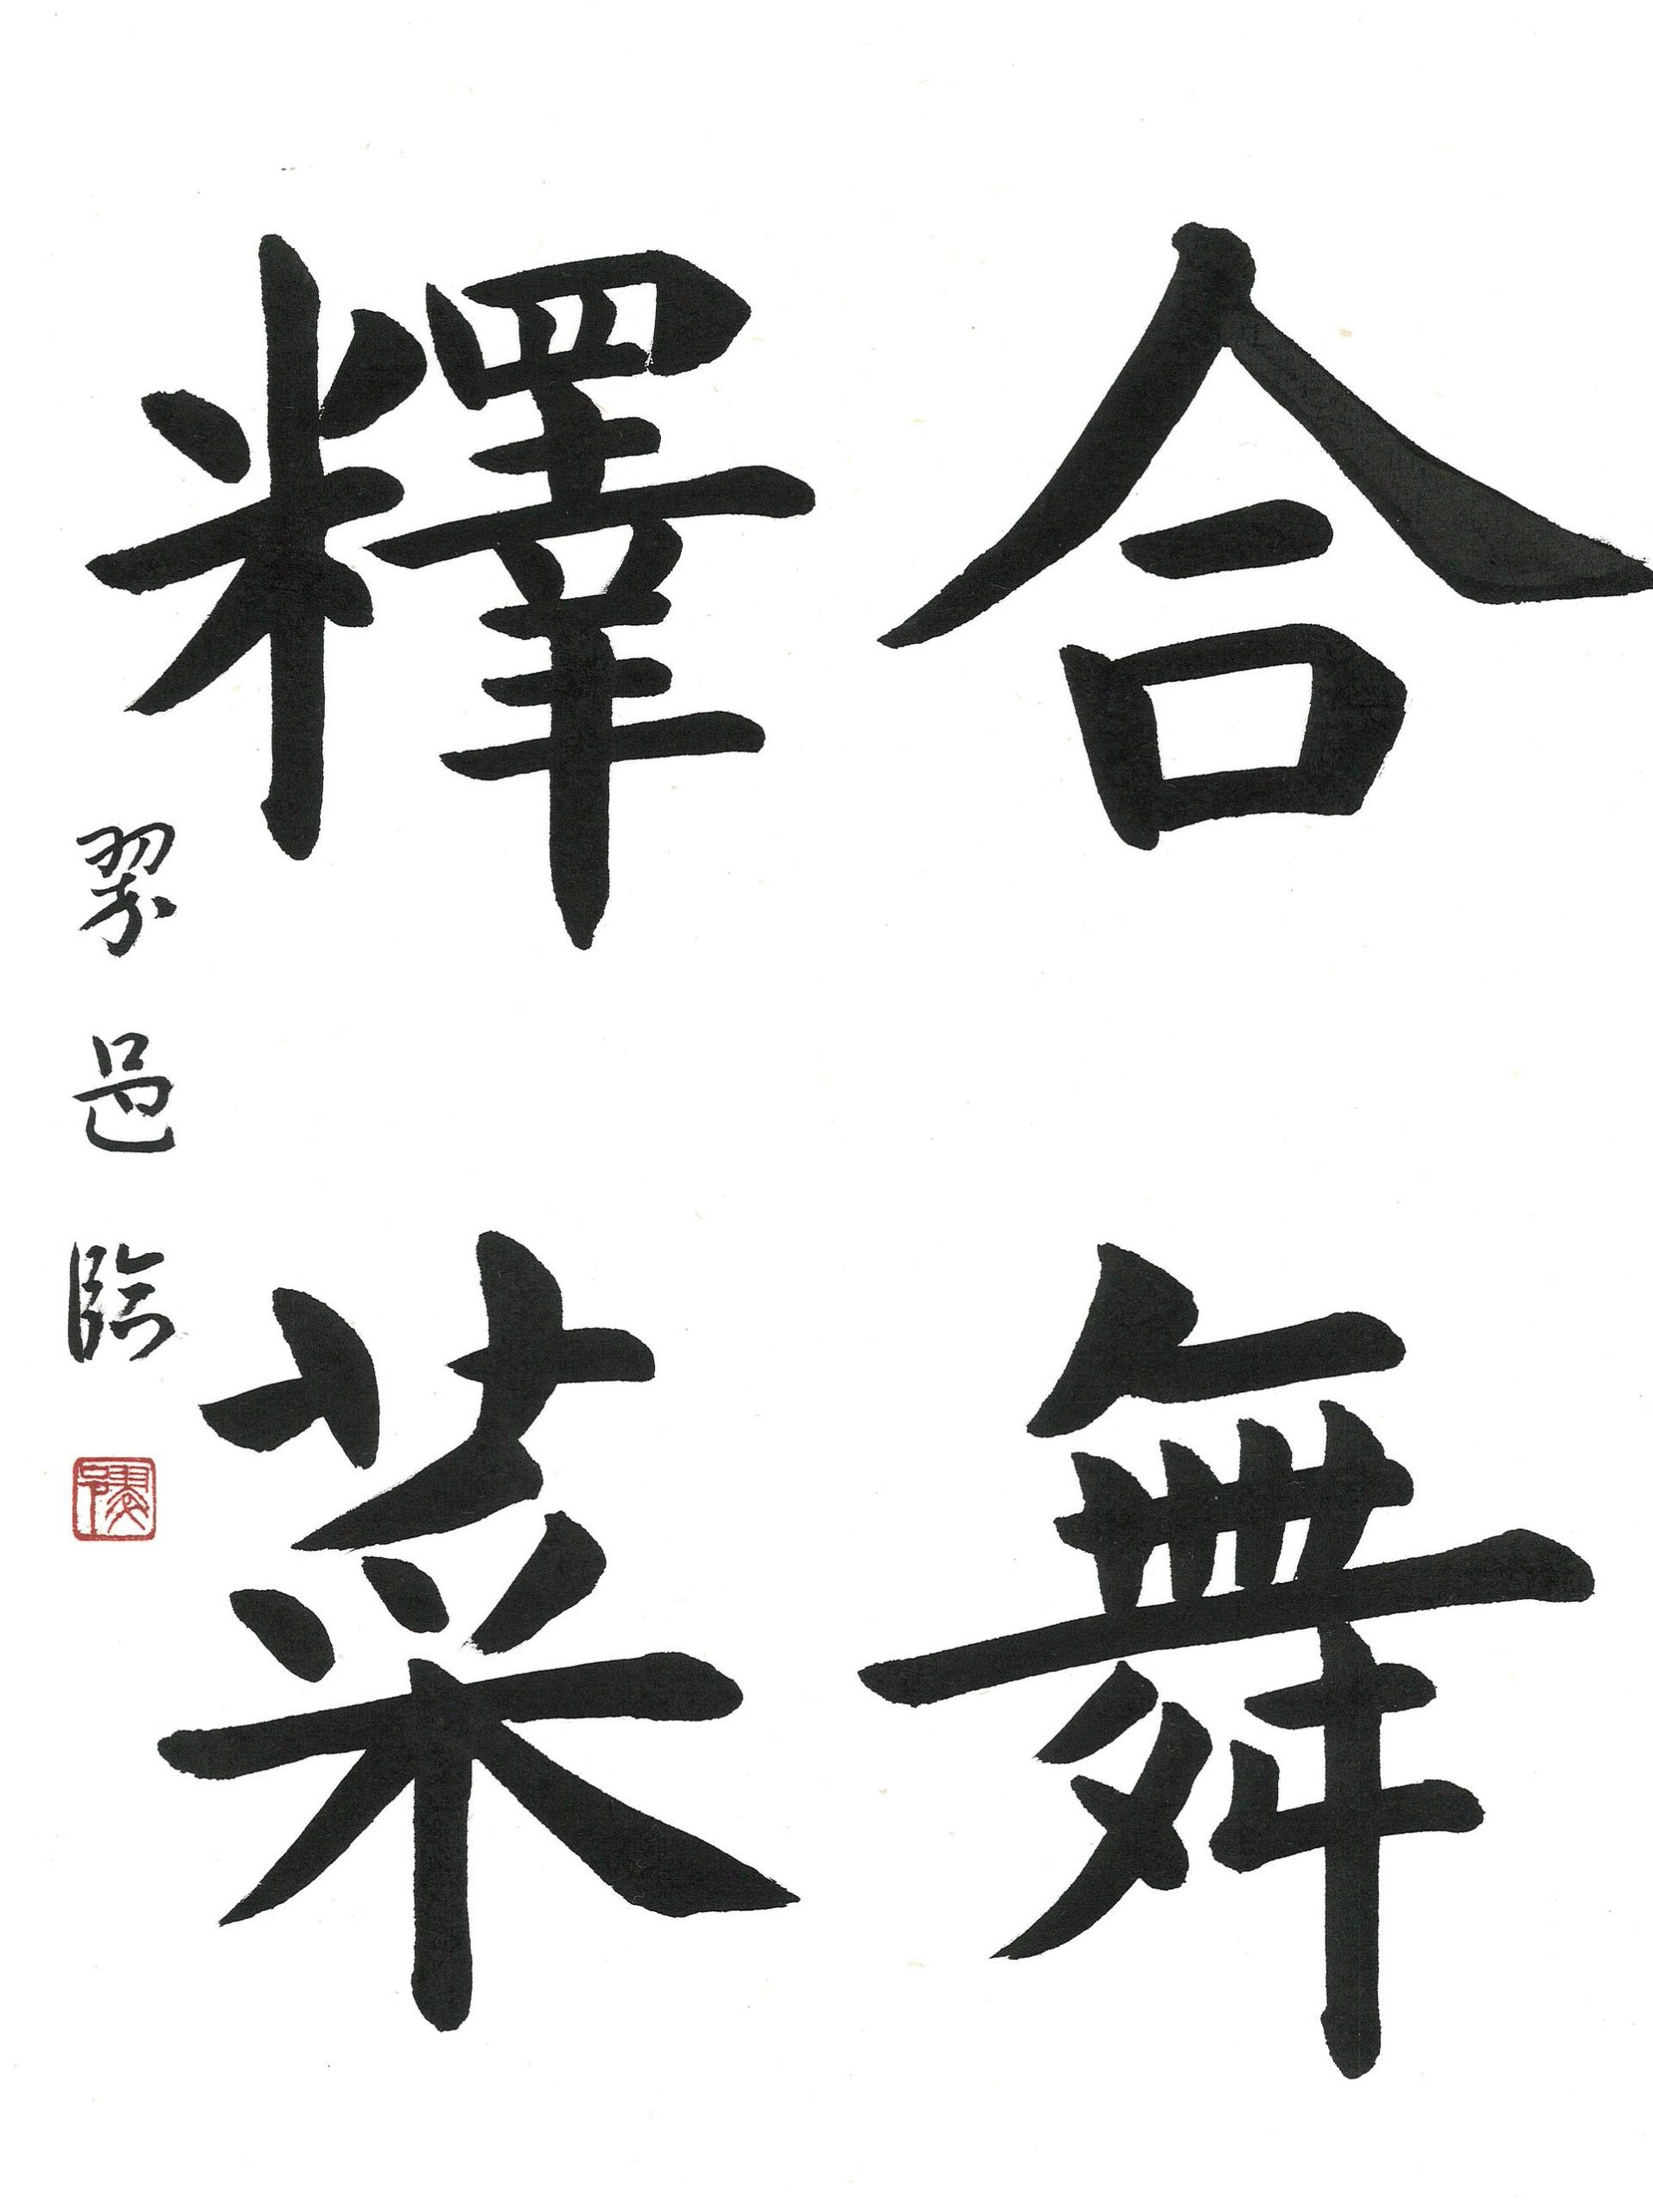 合舞
釋菜
翠邑臨